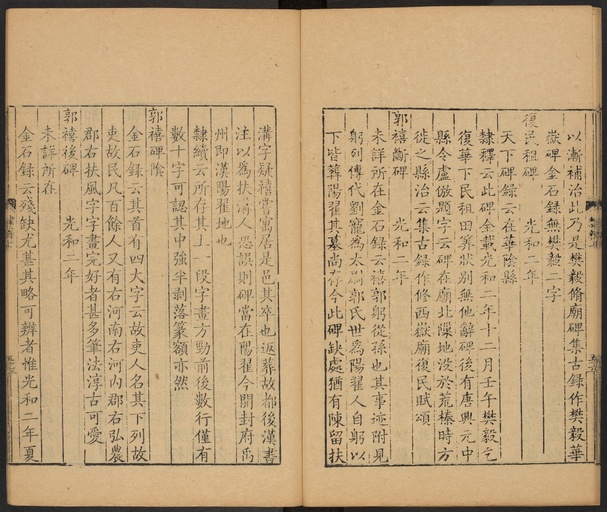 以漸補治此乃是樊毅脩廟碑集古錄作樊毅華
嶽碑金石録無樊毅二字
復民租碑　光和二年
天下碑錄云在華隂縣
隸釋云此碑全載光和二年十二月壬午樊毅乞
復華下民租田筭狀别無他辭碑後有唐興元中
縣令盧倣題字云碑在廟北隟地没於荒榛時方
徙之縣治云集古録作修西嶽廟復民賦頌
郭禧斷碑　光和二年
未詳所在金石錄云禧郭躬從孫也其事迹附見
躬列傳代劉寵為太尉郭氏世為陽翟人自躬以
下皆葬陽翟其墓尚存今此碑缺處猶有陳留扶
溝字疑禧嘗寓居是邑其卒也返葬故都後漢書
注以為扶溝人恐誤則碑當在陽翟今開封府禹
州即漢陽翟地也
隸續云所存其上一段字畫方勁前後數行僅有
數十字可認其中强半剥落篆額亦然
郭禧碑隂
金石錄云其首有四大字云故吏人名其下列故
吏故民凡百餘人又有右河南右河内郡右弘農
郡右扶風字字畫完好者甚多筆法淳古可愛
郭禧後碑　光和二年
未詳所在
金石錄云殘缺尤甚其略可辨者惟光和二年夏